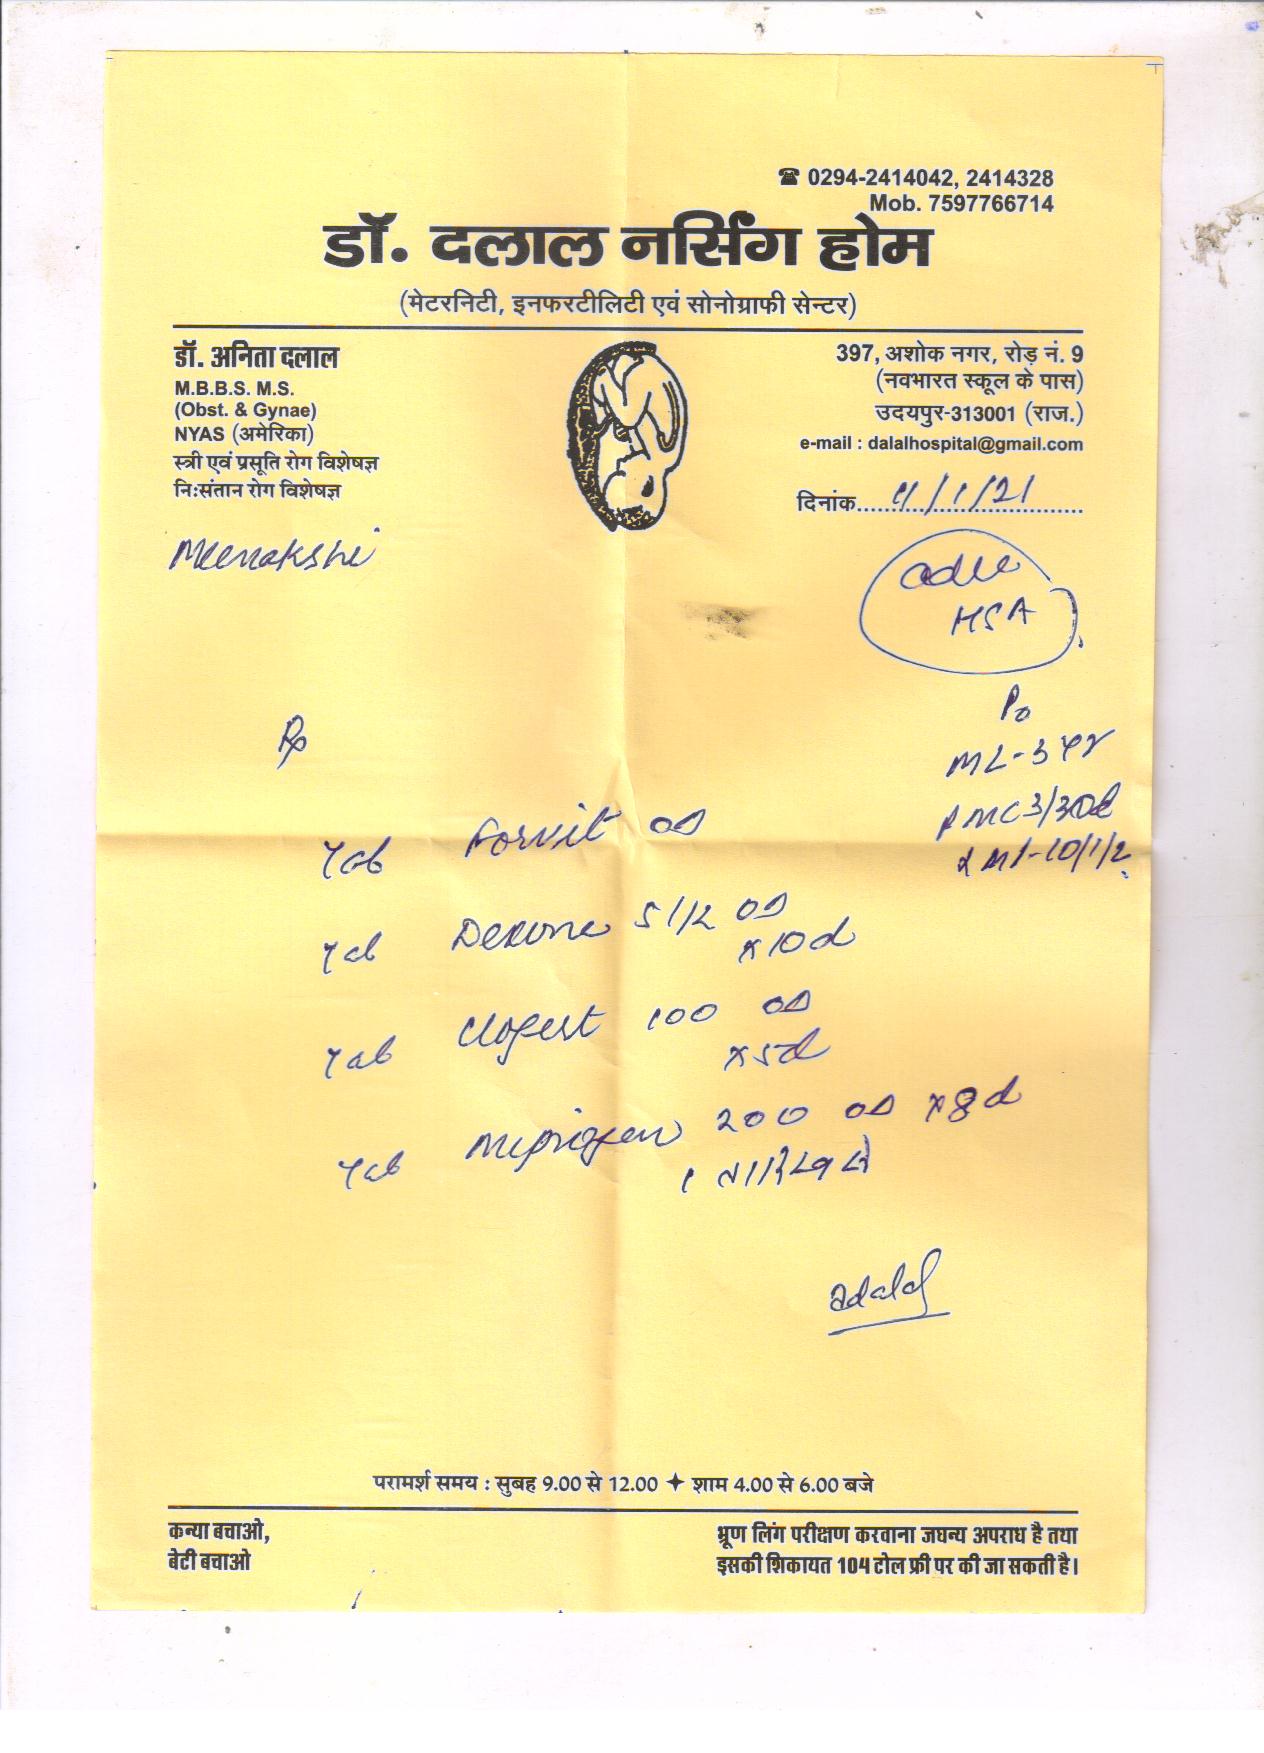 ☎ 0294-2414042, 2414328
Mob. 7597766714
डॉ. दलाल नर्सिंग होम
(मेटरनिटी, इनफरटीलिटी एवं सोनोग्राफी सेन्टर)
डॉ. अनिता दलाल
M.B.B.S. M.S.
(Obst. & Gynae)
NYAS (अमेरिका)
स्त्री एवं प्रसूति रोग विशेषज्ञ
निःसंतान रोग विशेषज्ञ
397, अशोक नगर, रोड़ नं. 9
(नवभारत स्कूल के पास)
उदयपुर-313001 (राज.)
e-mail : dalalhospital@gmail.com
दिनांक.... /1/21
Meenakshi
HSA
P0
ML-3yr
PMC 3/30d
LMP-10/1/2
Rx
Tab Forvit OD
Tab 5 1/2 OD
x10d
Tab 100 OD
x5d
Tab 200 OD x8d
adalal
परामर्श समय : सुबह 9.00 से 12.00 ✦ शाम 4.00 से 6.00 बजे
कन्या बचाओ,
बेटी बचाओ
भ्रूण लिंग परीक्षण करवाना जघन्य अपराध है तथा
इसकी शिकायत 104 टोल फ्री पर की जा सकती है।